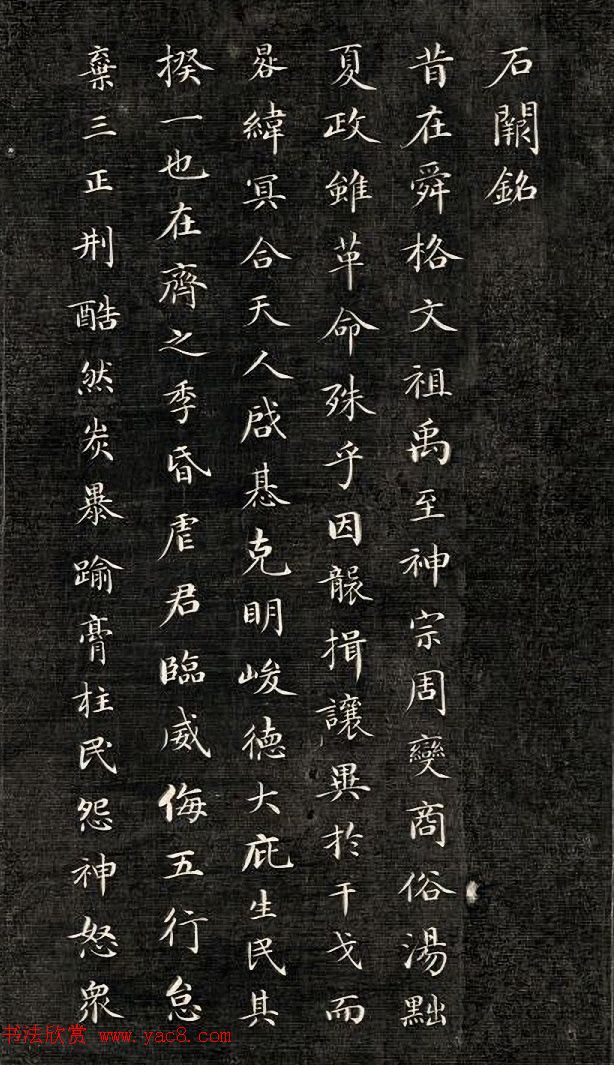 石闕銘
昔在舜格文祖禹至神宗周變商俗湯黜
夏政雖革命殊乎因襲揖讓異於干戈而
晷緯冥合天人啟惎克明峻德大庇生民其
揆一也在齊之季昏虐君臨威侮五行怠
棄三正刑酷然炭暴踰膏柱民怨神怒眾
书法欣赏 www.yac8.com